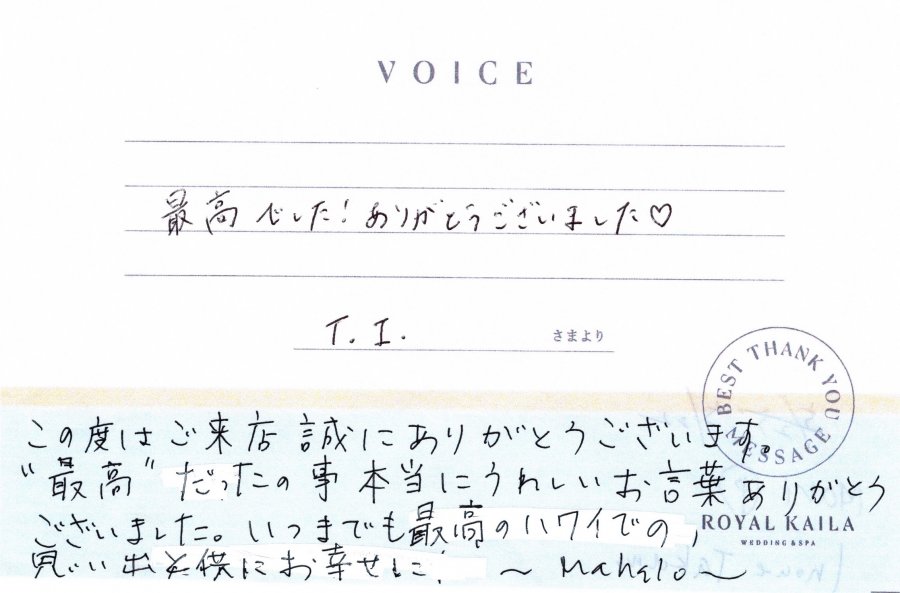 VOICE
最高でした！ありがとうございました♡
T.I. さまより
BEST THANK YOU MESSAGE
この度はご来店誠にありがとうございます。
“最高”だったの事本当にうれしいお言葉ありがとう
ございました。いつまでも最高のハワイでの,
ROYAL KAILA
WEDDING & SPA
思い出と供にお幸せに!
～Mahalo～